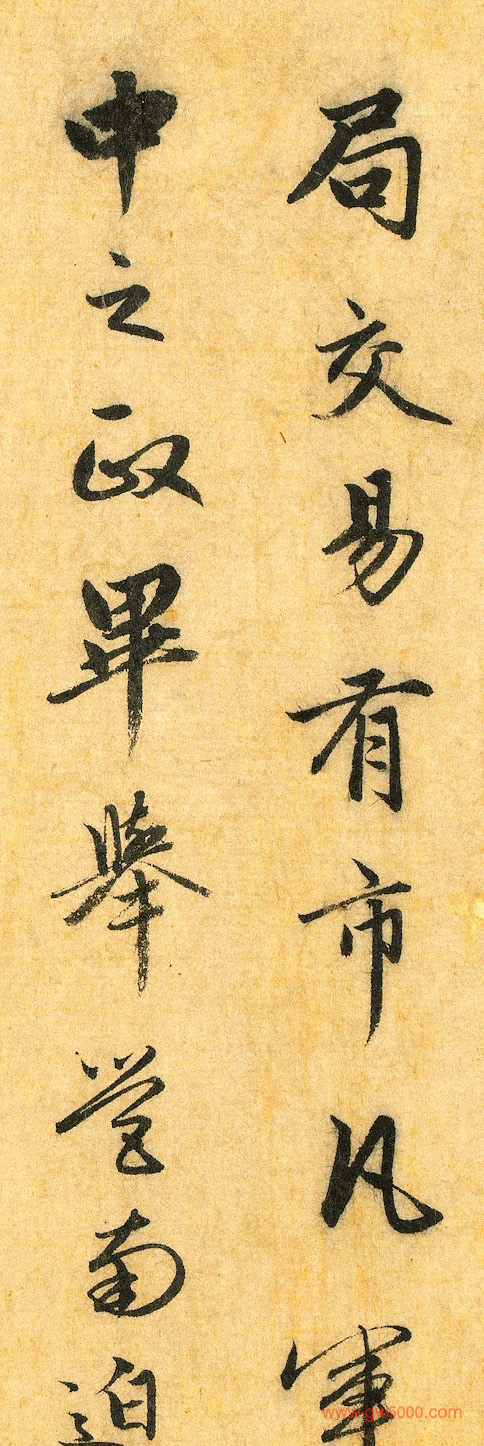 局交易有市凡軍
中之政畢舉營南迫
www.gw5000.com